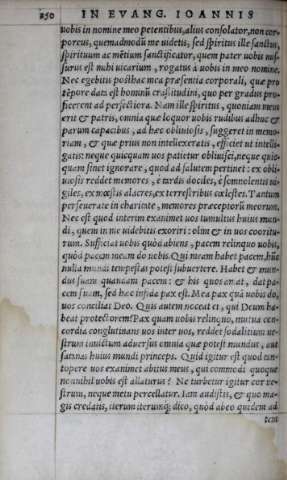 250 IN EVANG. IOANNIS
uobis in nomine meo petentibus, alius consolator, non cor-
poreus, quemadmodũ me uidetis, sed spiritus ille sanctus,
spirituum ac mẽtium sanctificator, quem pater uobis mis-
surus est mihi uicarium, rogatus à uobis in meo nomine.
Nec egebitis posthac mea præsentia corporali, quæ pro
tẽpore data est hominũ crassitudini, quo per gradus pro-
ficerent ad perfectiora. Nam ille spiritus, quoniam meus
erit & patris, omnia quæ loquor uobis rudibus adhuc &
parum capacibus, ad hæc obliuiosis, suggeret in memo-
riam, & quæ prius non intellexeratis, efficiet ut intelli-
gatis: neque quicquam uos patietur obliuisci, neque quic-
quam sinet ignorare, quod ad salutem pertinet: ex obli-
uiosis reddet memores, è tardis dociles, è somnolentis ui-
giles, ex mœstis alacres, ex terrestribus cælestes. Tantum
perseuerate in charitate, memores præceptorũ meorum.
Nec est quod interim exanimet uos tumultus huius mun-
di, quem in me uidebitis exoriri: olim & in uos cooritu-
rum. Sufficiat uobis quòd abiens, pacem relinquo uobis,
quòd pacem meam do uobis. Qui meam habet pacem, hũc
nulla mundi tempestas potest subuertere. Habet & mun-
dus suam quandam pacem: & his quos amat, dat pa-
cem suam, sed hæc infida pax est. Mea pax quã uobis do,
uos conciliat Deo. Quis autem noceat ei, qui Deum ha-
beat protectorem? Pax quam uobis relinquo, mutua con-
cordia conglutinans uos inter uos, reddet sodalitium ue-
strum inuictum aduersus omnia quæ potest mundus, aut
satanas huius mundi princeps. Quid igitur est quod tan-
topere uos exanimet abitus meus, qui commodi quoque
nonnihil uobis est allaturus? Ne turbetur igitur cor ue-
strum, neque metu percellatur. Iam audistis, & quo ma-
gis credatis, iterum iterumq; dico, quòd abeo quidem ad